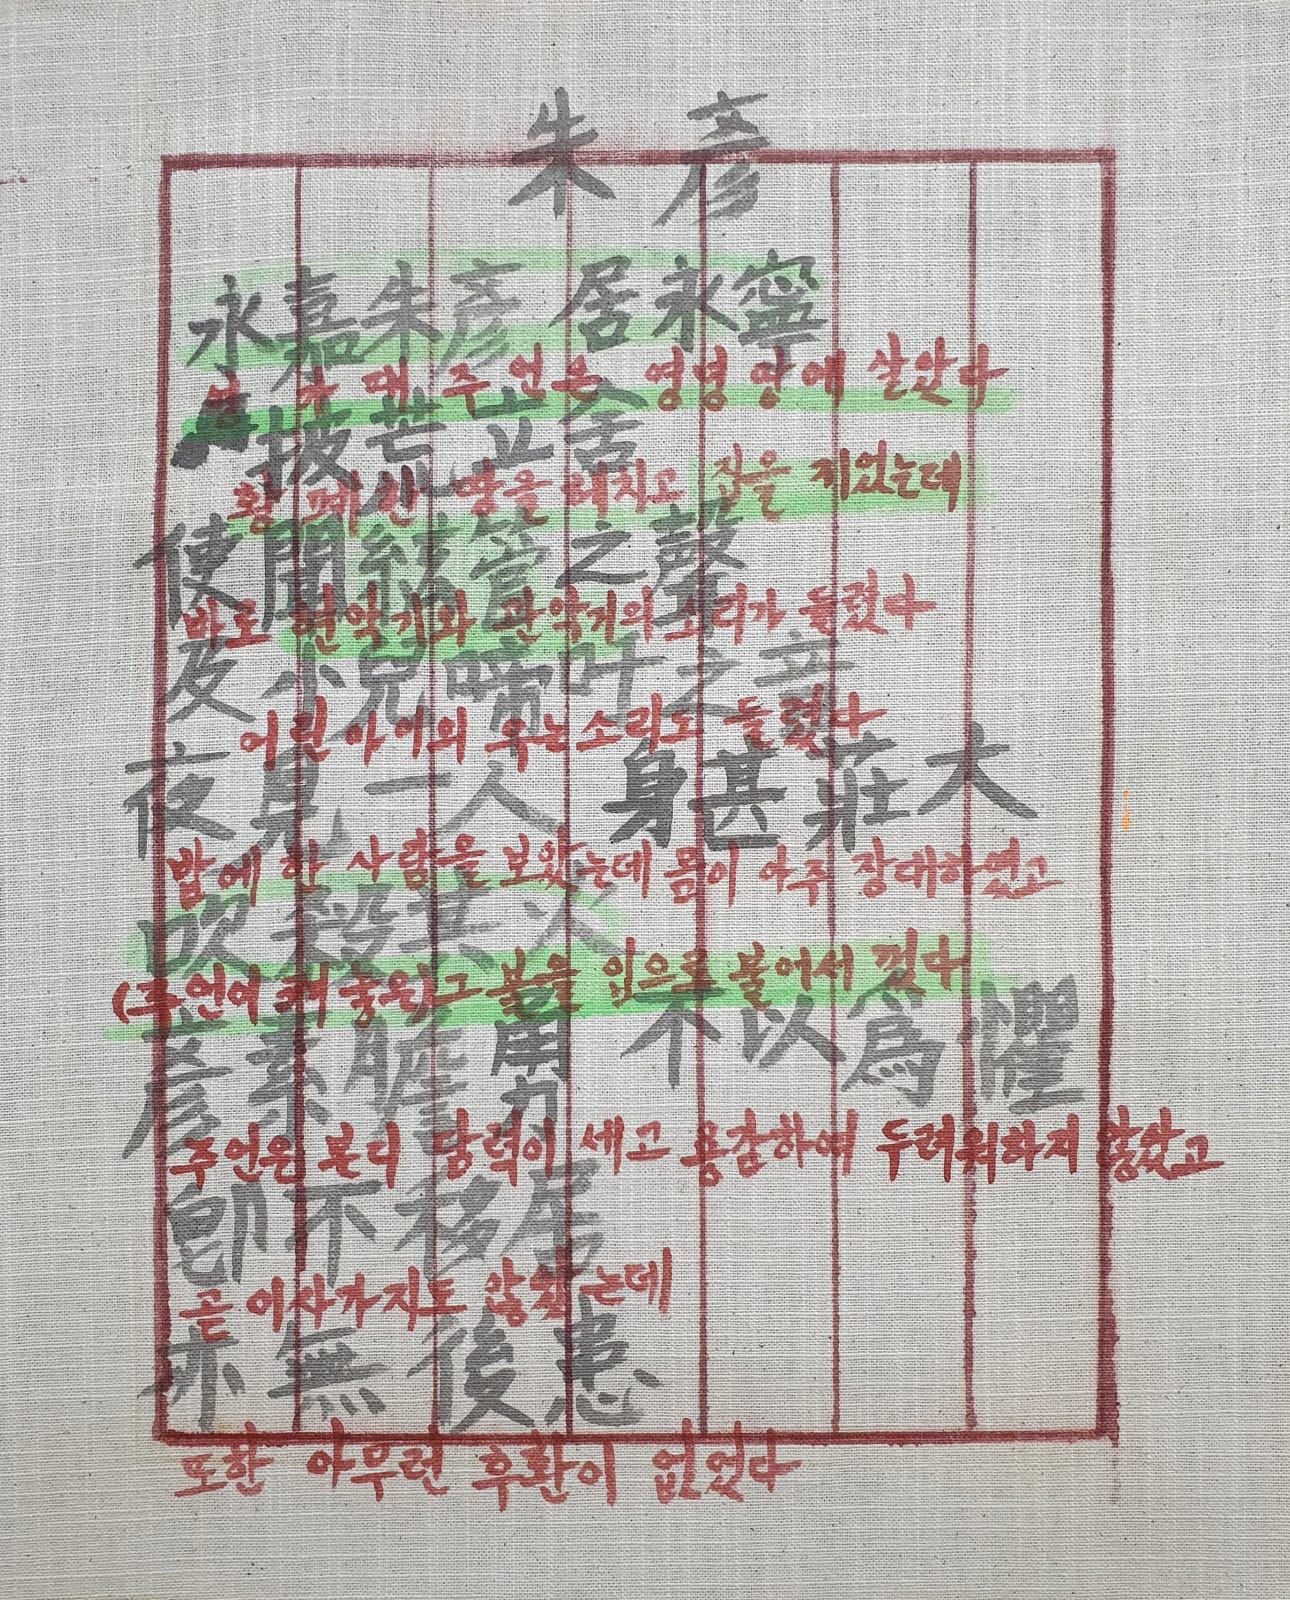 朱彦
永嘉朱彦居永寧
영가대 주언은 영녕 땅에 살았다
披芒立舍
황폐한 땅을 헤치고 집을 지었는데
便聞絃管之聲
바로 현악기와 관악기의 소리가 들렸다
及小兒啼叫之音
어린아이의 우는소리도 들렸다
夜見一人 身甚莊大
밤에 한 사람을 보았는데 몸이 아주 장대하였고
吹殺其火
(주언이 켜 놓은) 그 불을 입으로 불어서 껐다
彦素膽勇 不以爲懼
주언은 본디 담력이 세고 용감하여 두려워하지 않았고
卽不移居
곧 이사가지도 않았는데
亦無後患
또한 아무런 후환이 없었다